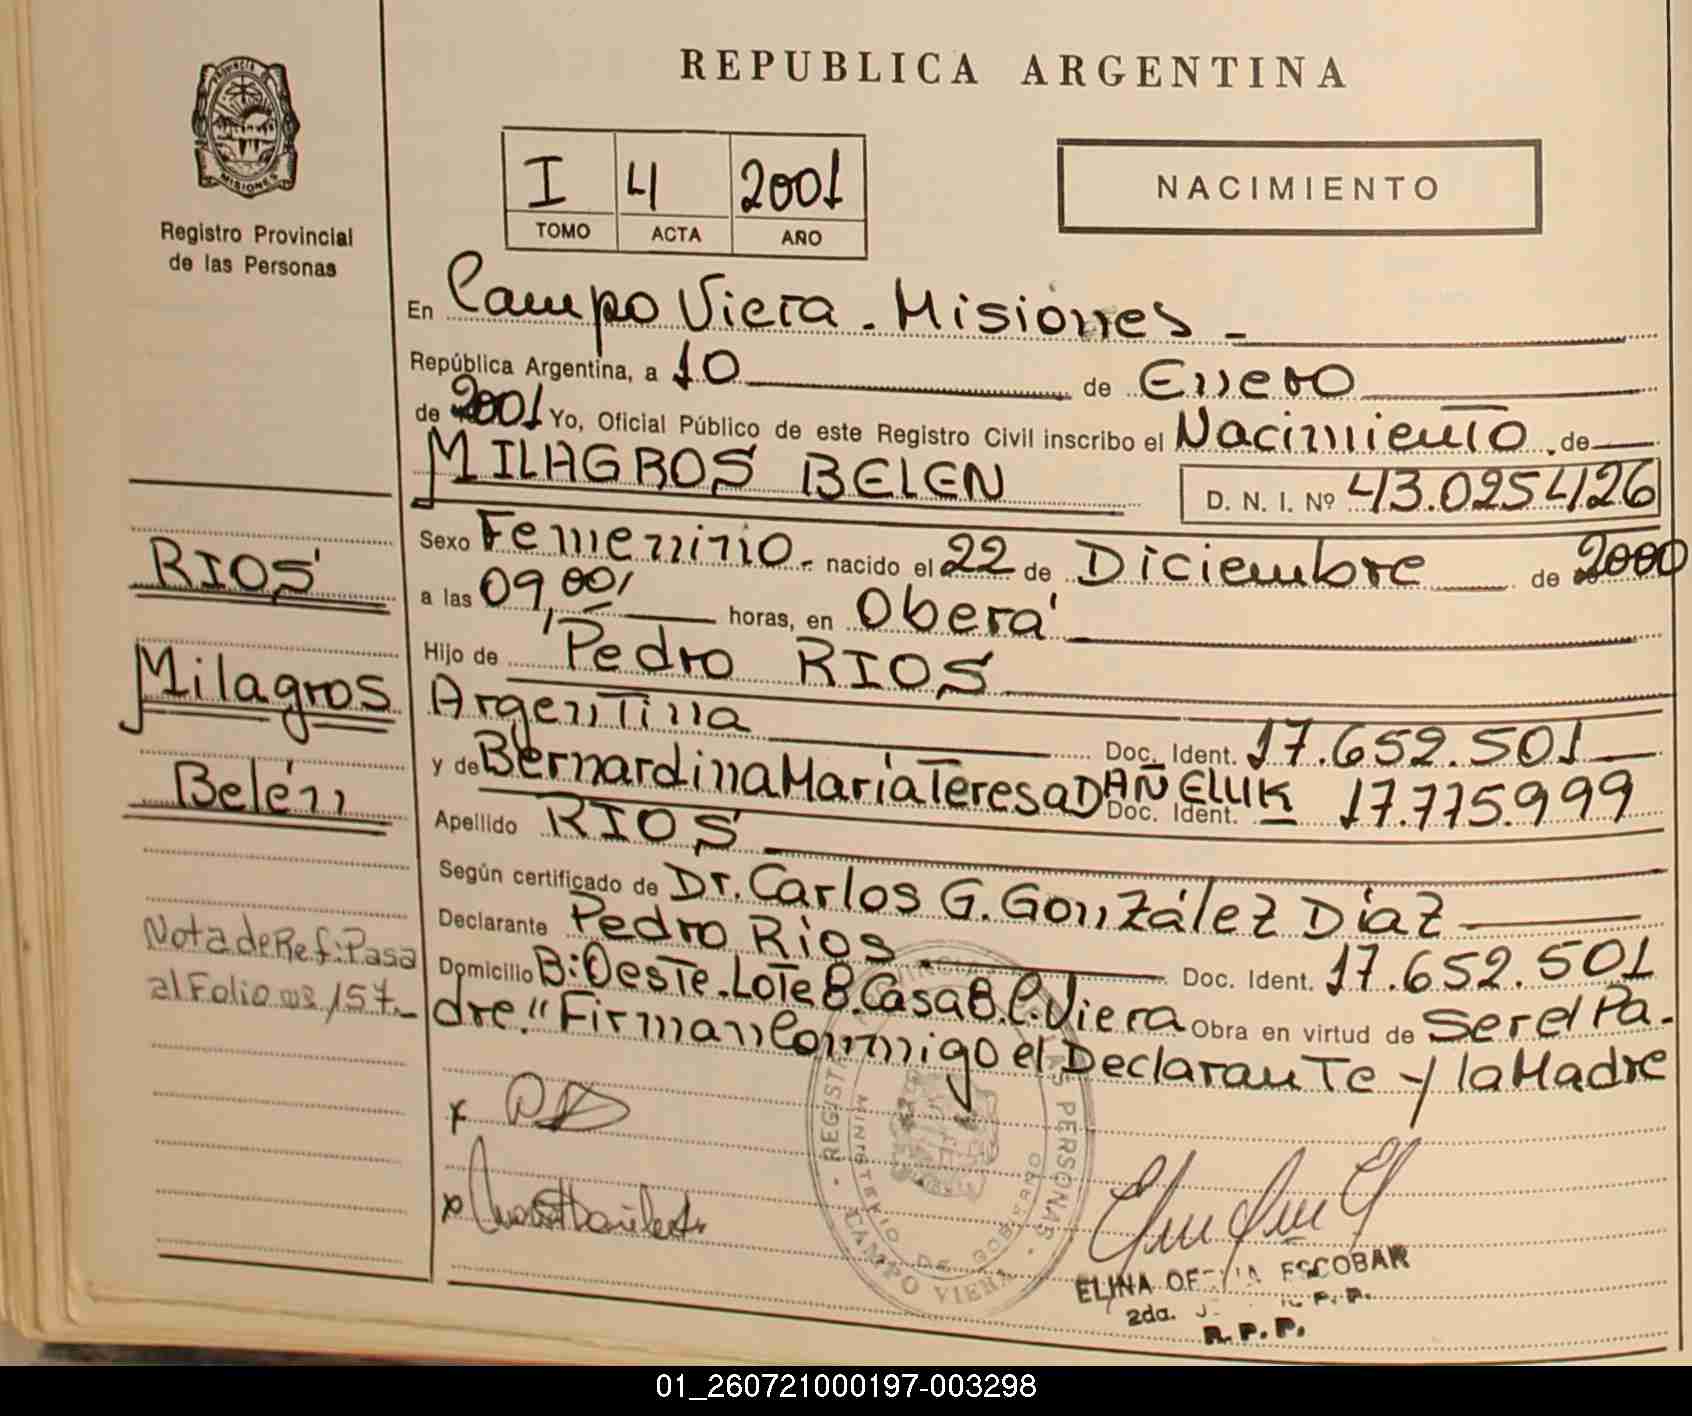 REPUBLICA ARGENTINA
PROVINCIA DE
MISIONES
Registro Provincial
de las Personas
I 4 2001
TOMO ACTA AÑO
NACIMIENTO
En Campo Viera - Misiones -
República Argentina, a 10 de Enero
de 2001 Yo, Oficial Público de este Registro Civil inscribo el Nacimiento, de
MILAGROS BELEN D. N. I. Nº 43.025426
Sexo Femenino - nacido el 22 de Diciembre de 2000
a las 09,00, horas, en Oberá
Hijo de Pedro RIOS
Argentina Doc. Ident. 17.652.501
y de Bernardina María Teresa DAÑELUK Doc. Ident. 17.775.999
Apellido RIOS
Según certificado de Dr. Carlos G. González Díaz
Declarante Pedro Rios Doc. Ident. 17.652.501
Domicilio B: Oeste. Lote 8. Casa 8. C. Viera Obra en virtud de Ser el Pa-
dre." Firman Conmigo el Declarante y la Madre
RIOS
Milagros
Belén
Nota de Ref: Pasa
al Folio nº 157.-
x
x
REGISTRO PERSONAS
MINISTERIO DE GOBIERNO
CAMPO VIERA
ELINA ESCOBAR
2da.
R.P.P.
01_260721000197-003298